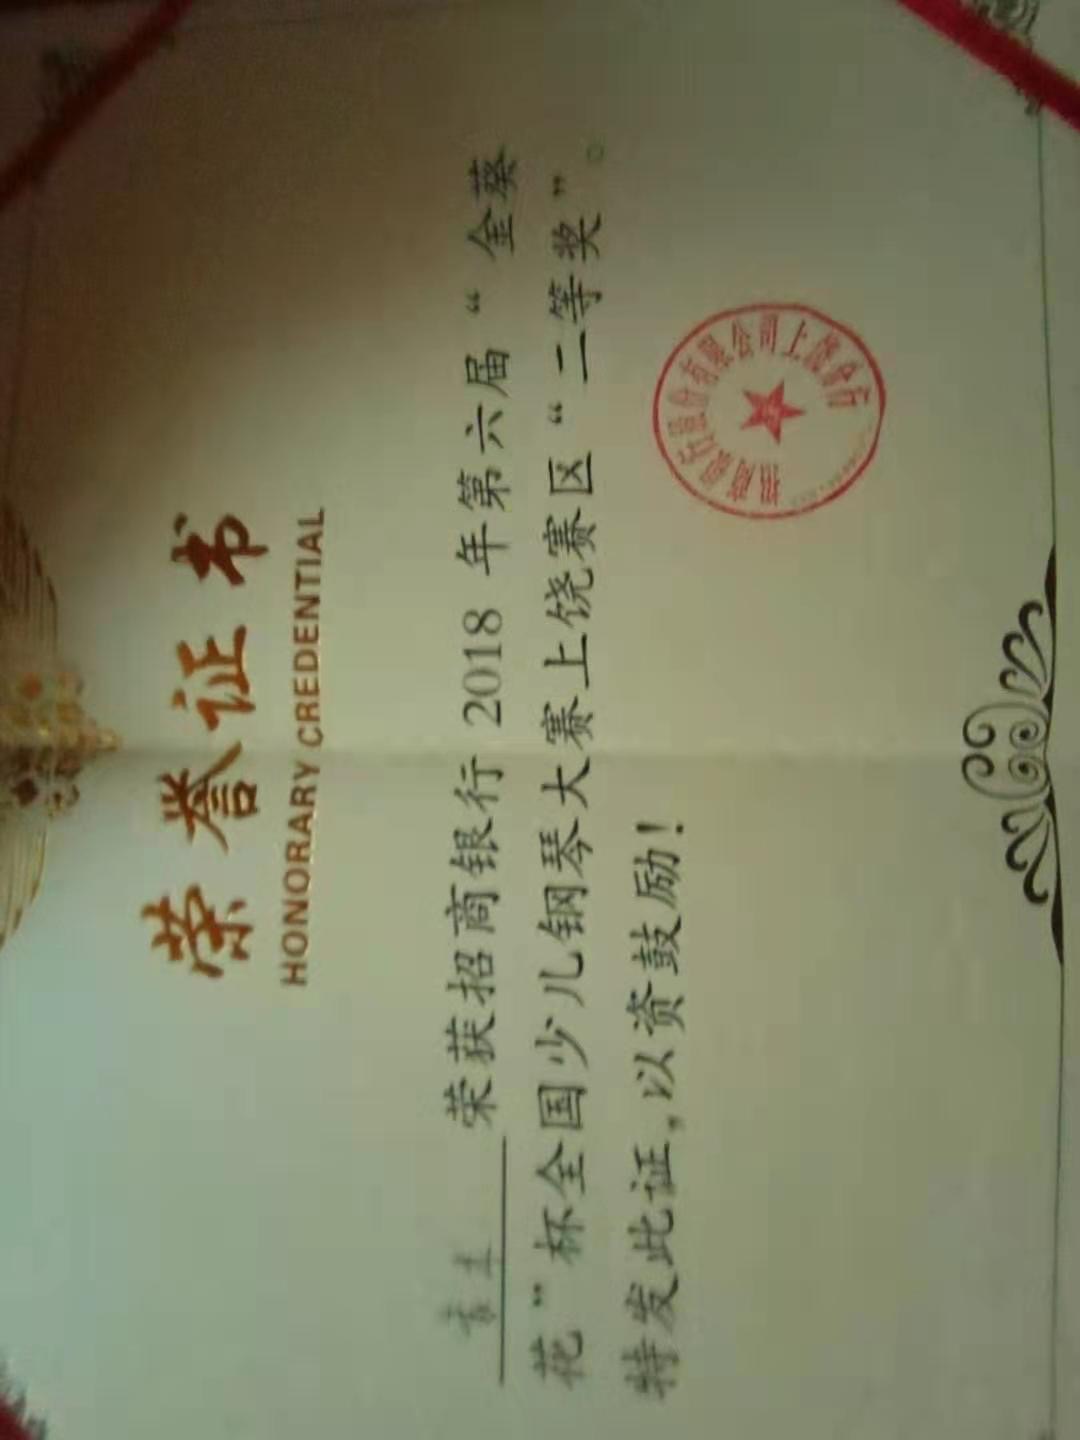 荣誉证书
HONORARY CREDENTIAL
荣获招商银行 2018 年第六届“金葵
花”杯全国少儿钢琴大赛上饶赛区“二等奖”。
特发此证，以资鼓励！
招商银行股份有限公司上饶分行